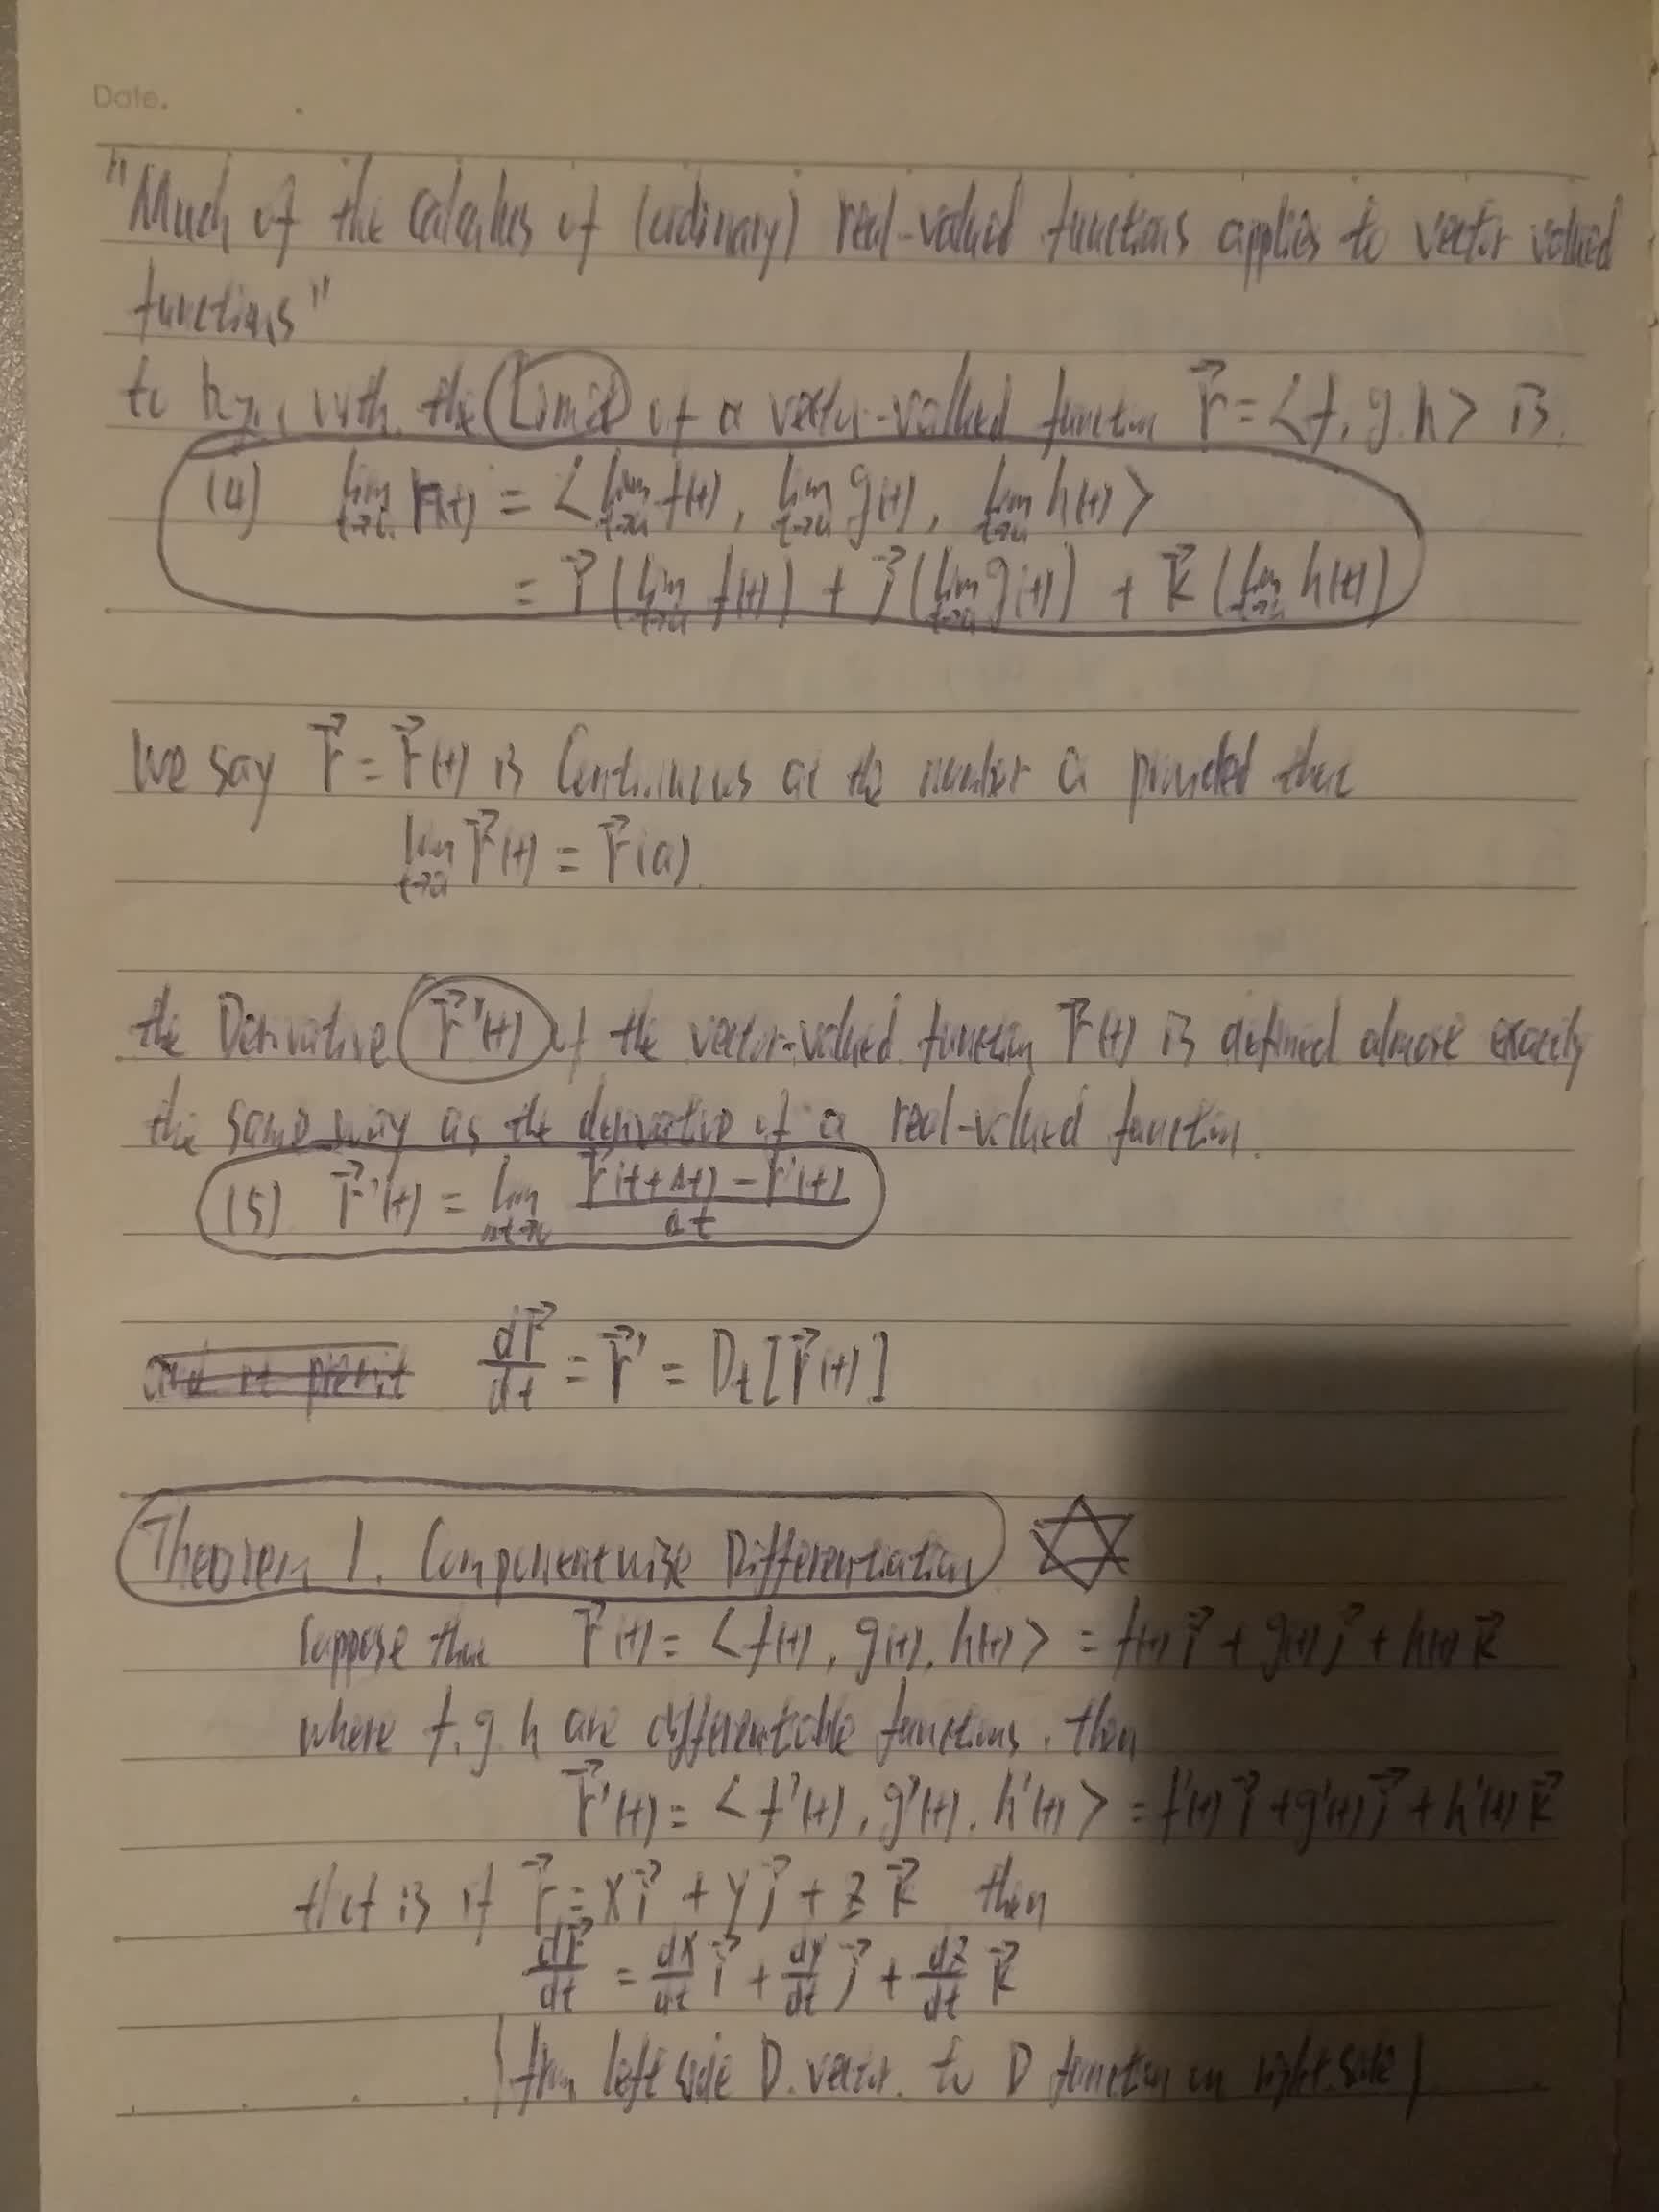 Date.
"Much of the calculus of (ordinary) real-valued functions applies to vector valued
functions"
to begin with the Limit of a vector-valued function r⃗ = <f, g, h> is
(4) lim t→a r⃗(t) = <lim t→a f(t), lim t→a g(t), lim t→a h(t)>
= i⃗ (lim t→a f(t)) + j⃗ (lim t→a g(t)) + k⃗ (lim t→a h(t))
We say r⃗ = r⃗(t) is Continuous at the number a provided that
lim t→a r⃗(t) = r⃗(a).
the Derivative r⃗'(t) of the vector-valued function r⃗(t) is defined almost exactly
the same way as the derivative of a real-valued function.
(5) r⃗'(t) = lim Δt→0 (r⃗(t+Δt) - r⃗(t))/Δt
dr⃗/dt = r⃗' = Dt[r⃗(t)]
Theorem 1. Componentwise Differentiation
Suppose that r⃗(t) = <f(t), g(t), h(t)> = f(t) i⃗ + g(t) j⃗ + h(t) k⃗
where f, g, h are differentiable functions. then
r⃗'(t) = <f'(t), g'(t), h'(t)> = f'(t) i⃗ + g'(t) j⃗ + h'(t) k⃗
that is if r⃗ = x i⃗ + y j⃗ + z k⃗ then
dr⃗/dt = dx/dt i⃗ + dy/dt j⃗ + dz/dt k⃗
left side D. vector. to D function on right side